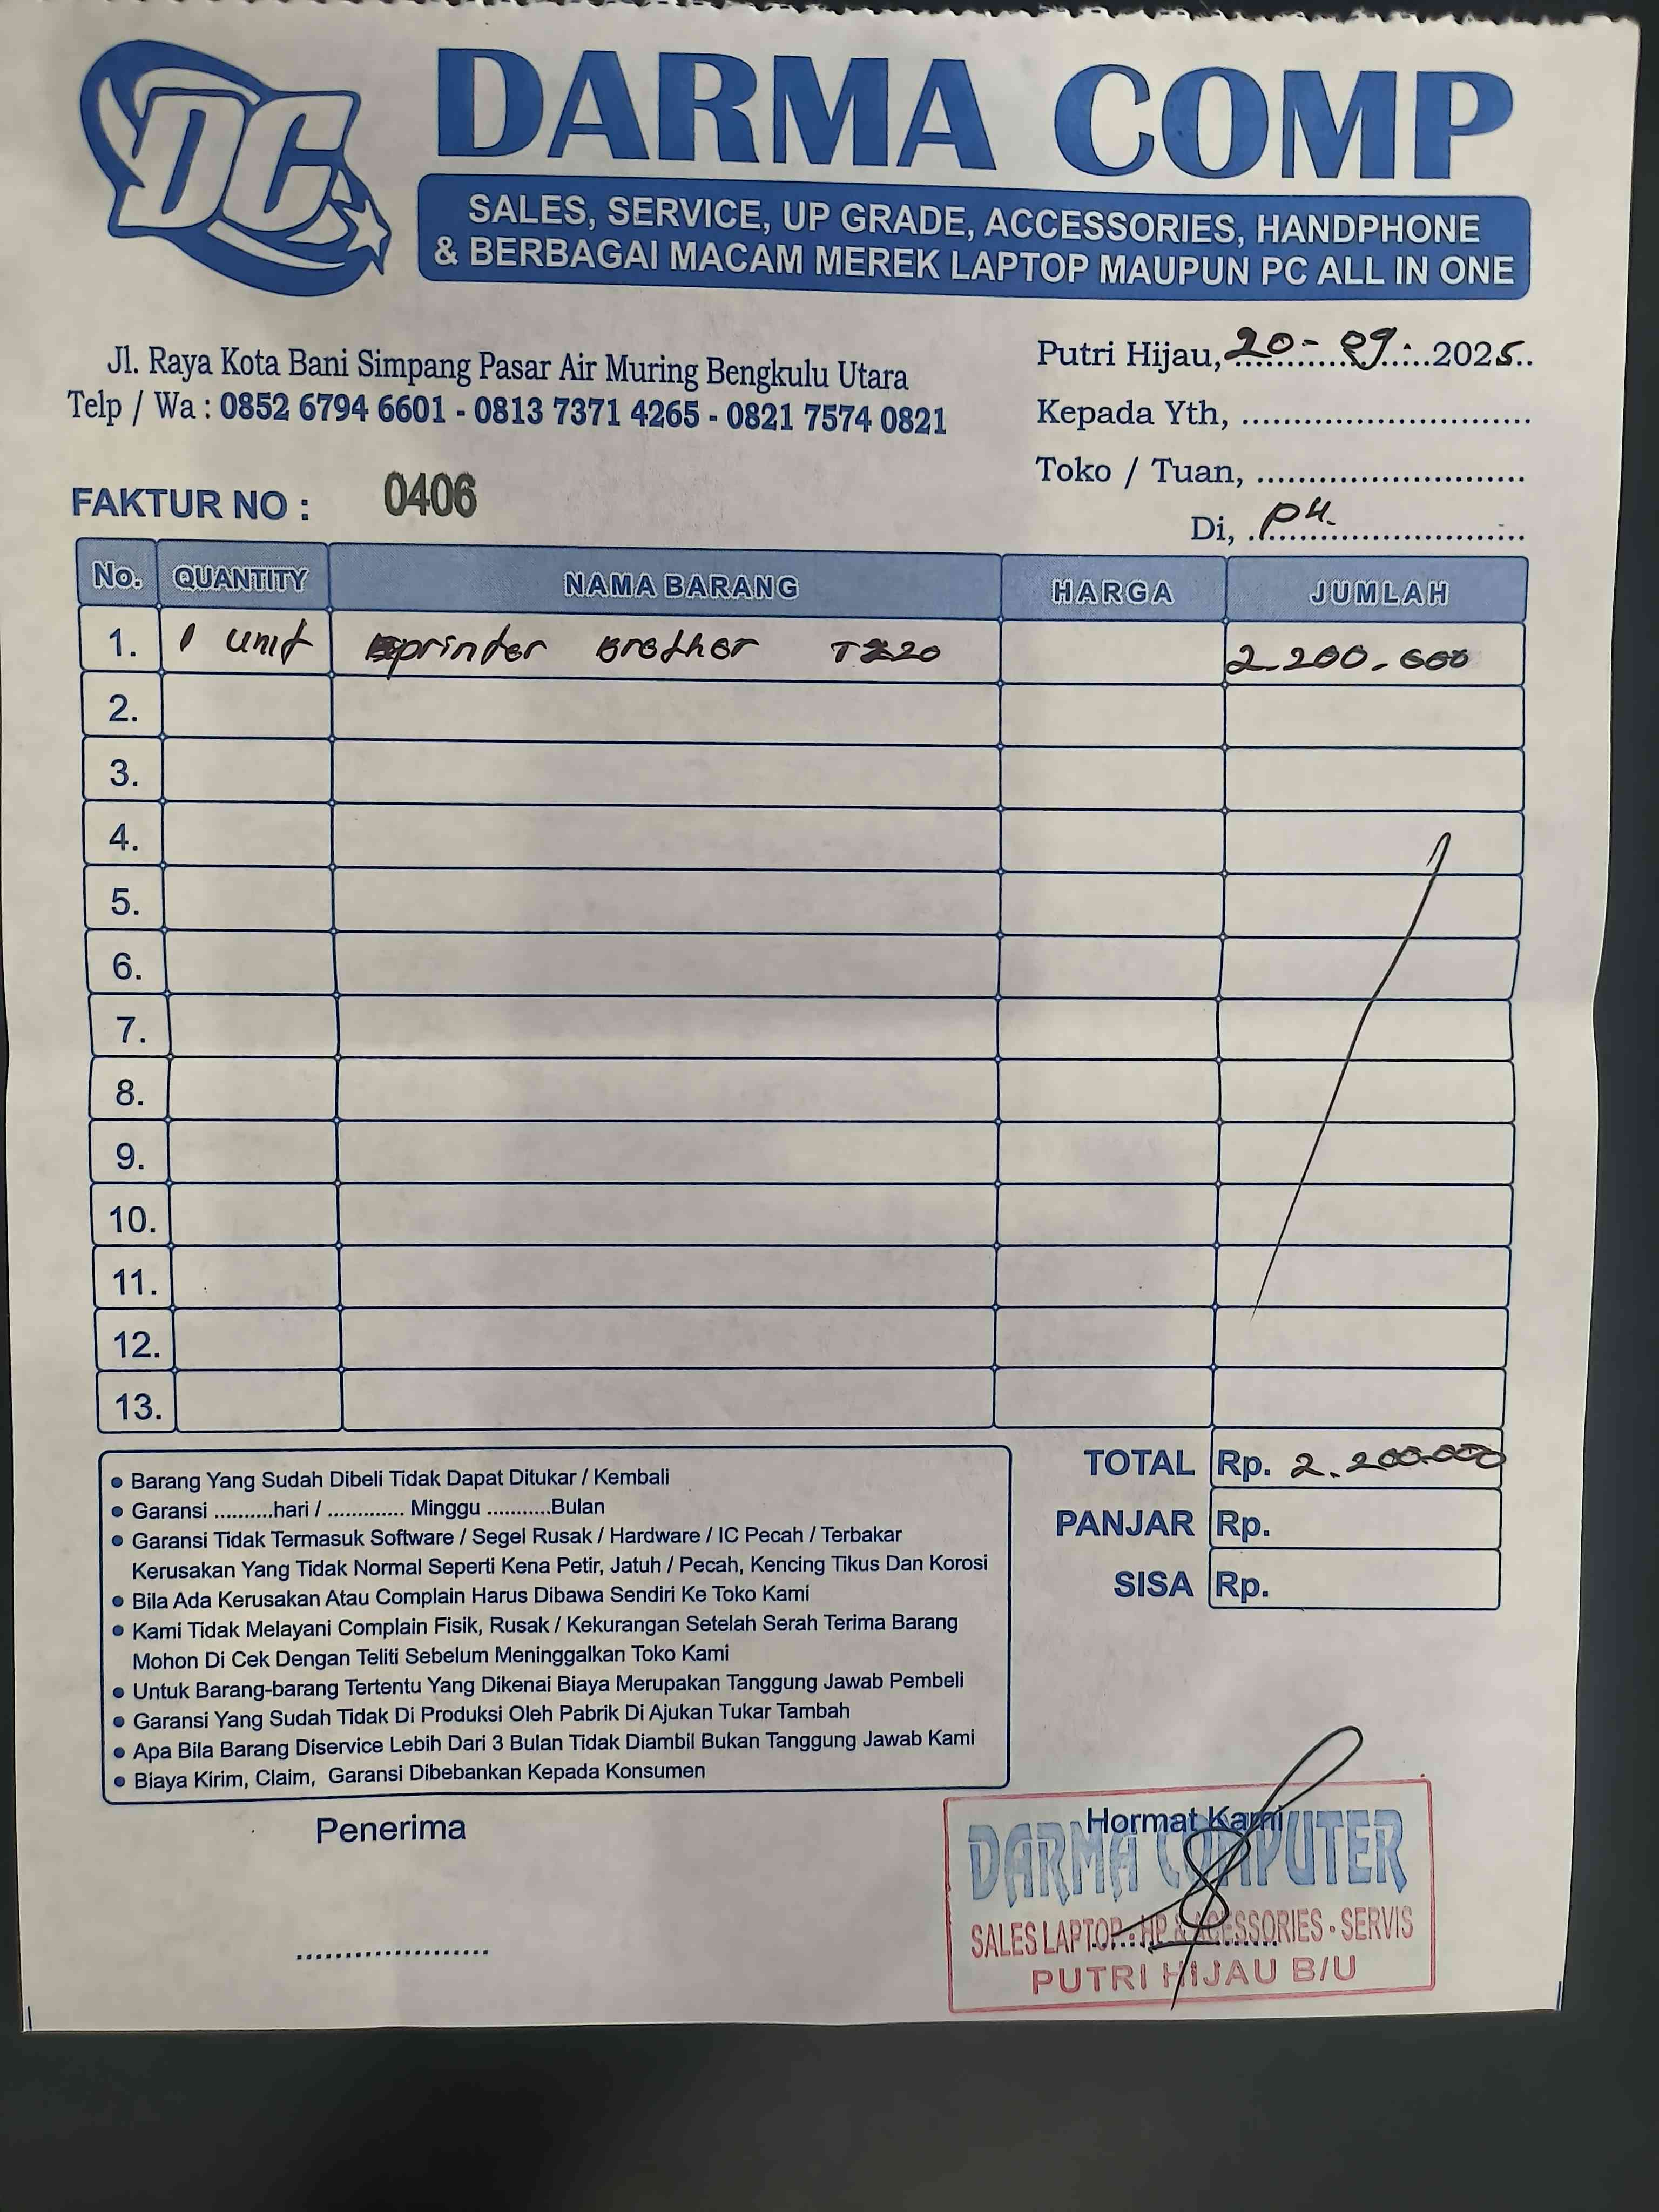 DC
DARMA COMP
SALES, SERVICE, UP GRADE, ACCESSORIES, HANDPHONE
& BERBAGAI MACAM MEREK LAPTOP MAUPUN PC ALL IN ONE
Jl. Raya Kota Bani Simpang Pasar Air Muring Bengkulu Utara
Telp / Wa : 0852 6794 6601 - 0813 7371 4265 - 0821 7574 0821
Putri Hijau, 20-09-2025
Kepada Yth, ............................
Toko / Tuan, ..........................
FAKTUR NO : 0406
Di, PH.
No. QUANTITY NAMA BARANG HARGA JUMLAH
1. 1 unit printer Brother T220 2.200.000
2.
3.
4.
5.
6.
7.
8.
9.
10.
11.
12.
13.
TOTAL Rp. 2.200.000
PANJAR Rp.
SISA Rp.
• Barang Yang Sudah Dibeli Tidak Dapat Ditukar / Kembali
• Garansi ..........hari / ............. Minggu ...........Bulan
• Garansi Tidak Termasuk Software / Segel Rusak / Hardware / IC Pecah / Terbakar
Kerusakan Yang Tidak Normal Seperti Kena Petir, Jatuh / Pecah, Kencing Tikus Dan Korosi
• Bila Ada Kerusakan Atau Complain Harus Dibawa Sendiri Ke Toko Kami
• Kami Tidak Melayani Complain Fisik, Rusak / Kekurangan Setelah Serah Terima Barang
Mohon Di Cek Dengan Teliti Sebelum Meninggalkan Toko Kami
• Untuk Barang-barang Tertentu Yang Dikenai Biaya Merupakan Tanggung Jawab Pembeli
• Garansi Yang Sudah Tidak Di Produksi Oleh Pabrik Di Ajukan Tukar Tambah
• Apa Bila Barang Diservice Lebih Dari 3 Bulan Tidak Diambil Bukan Tanggung Jawab Kami
• Biaya Kirim, Claim, Garansi Dibebankan Kepada Konsumen
Penerima
Hormat Kami
DARMA COMPUTER
SALES LAPTOP - HP & ACESSORIES - SERVIS
PUTRI HIJAU B/U